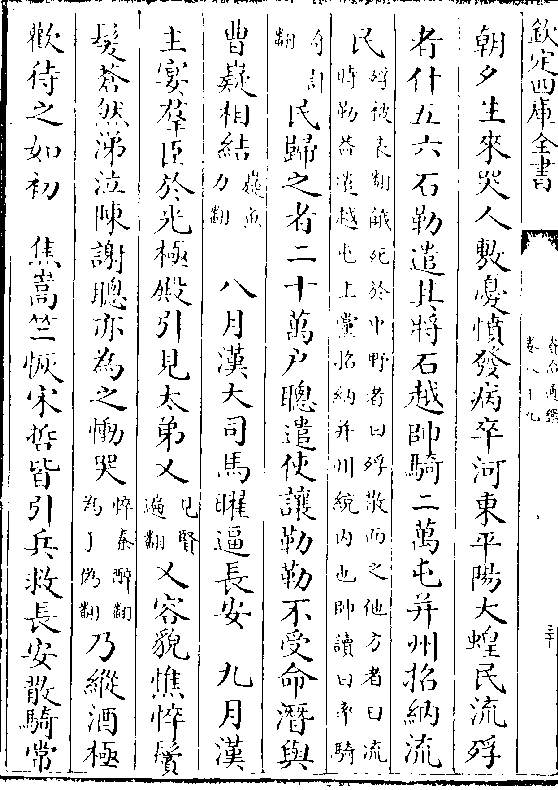 欽定四庫全書
資治通鑑
卷八十九
三十
朝夕生來哭人敷憂憤發病卒河東平陽大蝗民流殍
者什五六石勒遣其將石越帥騎二萬屯并州招納流
民
殍被表翻餓死於中野者曰殍散而之他方者曰流
時勒蓋遣越屯上黨招納并州統内也帥讀曰率騎
奇計
翻
民歸之者二十萬户聰遣使讓勒勒不受命潛與
曹嶷相結
嶷魚
力翻
八月漢大司馬曜逼長安 九月漢
主宴羣臣於光極殿引見太弟乂
見賢
遍翻
乂容貌憔悴鬢
髮蒼然涕泣陳謝聰亦為之慟哭
悴秦醉翻
為于偽翻
乃縱酒極
歡待之如初 焦嵩竺恢宋哲皆引兵救長安散騎常